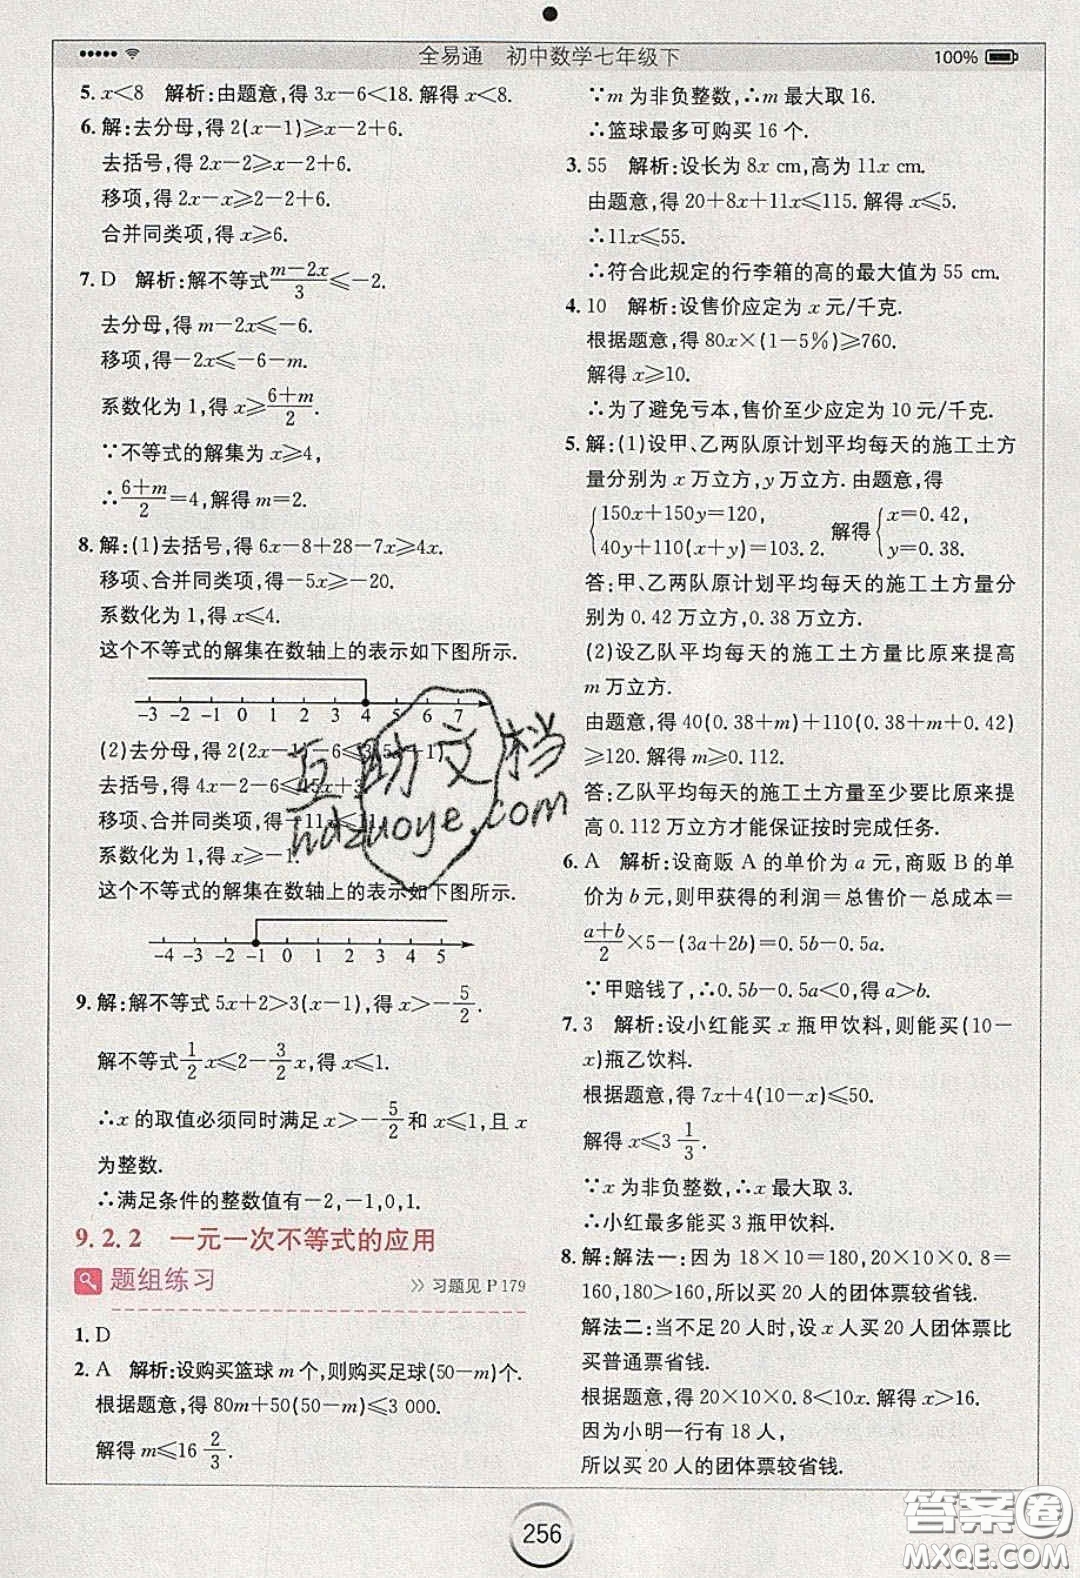 全易通 初中数学七年级下
100%
5. x<8 解析:由题意,得 3x-6<18. 解得 x<8.
6. 解:去分母,得 2(x-1)≥x-2+6.
去括号,得 2x-2≥x-2+6.
移项,得 2x-x≥2-2+6.
合并同类项,得 x≥6.
7. D 解析:解不等式 (m-2x)/3≤-2.
去分母,得 m-2x≤-6.
移项,得-2x≤-6-m.
系数化为 1,得 x≥(6+m)/2.
∵不等式的解集为 x≥4,
∴(6+m)/2=4,解得 m=2.
8. 解:(1)去括号,得 6x-8+28-7x≥4x.
移项、合并同类项,得-5x≥-20.
系数化为 1,得 x≤4.
这个不等式的解集在数轴上的表示如下图所示.
-3 -2 -1 0 1 2 3 4 5 6 7
(2)去分母,得 2(2x-1)-6≤3(5x+1)
去括号,得 4x-2-6≤15x+3
移项、合并同类项,得-11x≤11
系数化为 1,得 x≥-1.
这个不等式的解集在数轴上的表示如下图所示.
-4 -3 -2 -1 0 1 2 3 4 5
9. 解:解不等式 5x+2>3(x-1),得 x>-5/2.
解不等式 1/2 x≤2-3/2 x,得 x≤1.
∴x 的取值必须同时满足 x>-5/2 和 x≤1,且 x
为整数.
∴满足条件的整数值有-2,-1,0,1.
9.2.2 一元一次不等式的应用
题组练习 »习题见 P 179
1. D
2. A 解析:设购买篮球 m 个,则购买足球(50-m)个.
根据题意,得 80m+50(50-m)≤3 000.
解得 m≤16 2/3.
∵m 为非负整数,∴m 最大取 16.
∴篮球最多可购买 16 个.
3. 55 解析:设长为 8x cm,高为 11x cm.
由题意,得 20+8x+11x≤115. 解得 x≤5.
∴11x≤55.
∴符合此规定的行李箱的高的最大值为 55 cm.
4. 10 解析:设售价应定为 x 元/千克.
根据题意,得 80x×(1-5%)≥760.
解得 x≥10.
∴为了避免亏本,售价至少应定为 10 元/千克.
5. 解:(1)设甲、乙两队原计划平均每天的施工土方
量分别为 x 万立方,y 万立方. 由题意,得
{150x+150y=120, 40y+110(x+y)=103.2. 解得 {x=0.42, y=0.38.
答:甲、乙两队原计划平均每天的施工土方量分
别为 0.42 万立方,0.38 万立方.
(2)设乙队平均每天的施工土方量比原来提高
m 万立方.
由题意,得 40(0.38+m)+110(0.38+m+0.42)
≥120. 解得 m≥0.112.
答:乙队平均每天的施工土方量至少要比原来提
高 0.112 万立方才能保证按时完成任务.
6. A 解析:设商贩 A 的单价为 a 元,商贩 B 的单
价为 b 元,则甲获得的利润=总售价-总成本=
(a+b)/2×5-(3a+2b)=0.5b-0.5a.
∵甲赔钱了,∴0.5b-0.5a<0,得 a>b.
7. 3 解析:设小红能买 x 瓶甲饮料,则能买(10-
x)瓶乙饮料.
根据题意,得 7x+4(10-x)≤50.
解得 x≤3 1/3.
∵x 为非负整数,∴x 最大取 3.
∴小红最多能买 3 瓶甲饮料.
8. 解:解法一:因为 18×10=180,20×10×0.8=
160,180>160,所以买 20 人的团体票较省钱.
解法二:当不足 20 人时,设 x 人买 20 人团体票比
买普通票省钱.
根据题意,得 20×10×0.8<10x. 解得 x>16.
因为小明一行有 18 人,
所以买 20 人的团体票较省钱.
256
互助文档
hdzuoye.com
答案圈
MXQE.COM